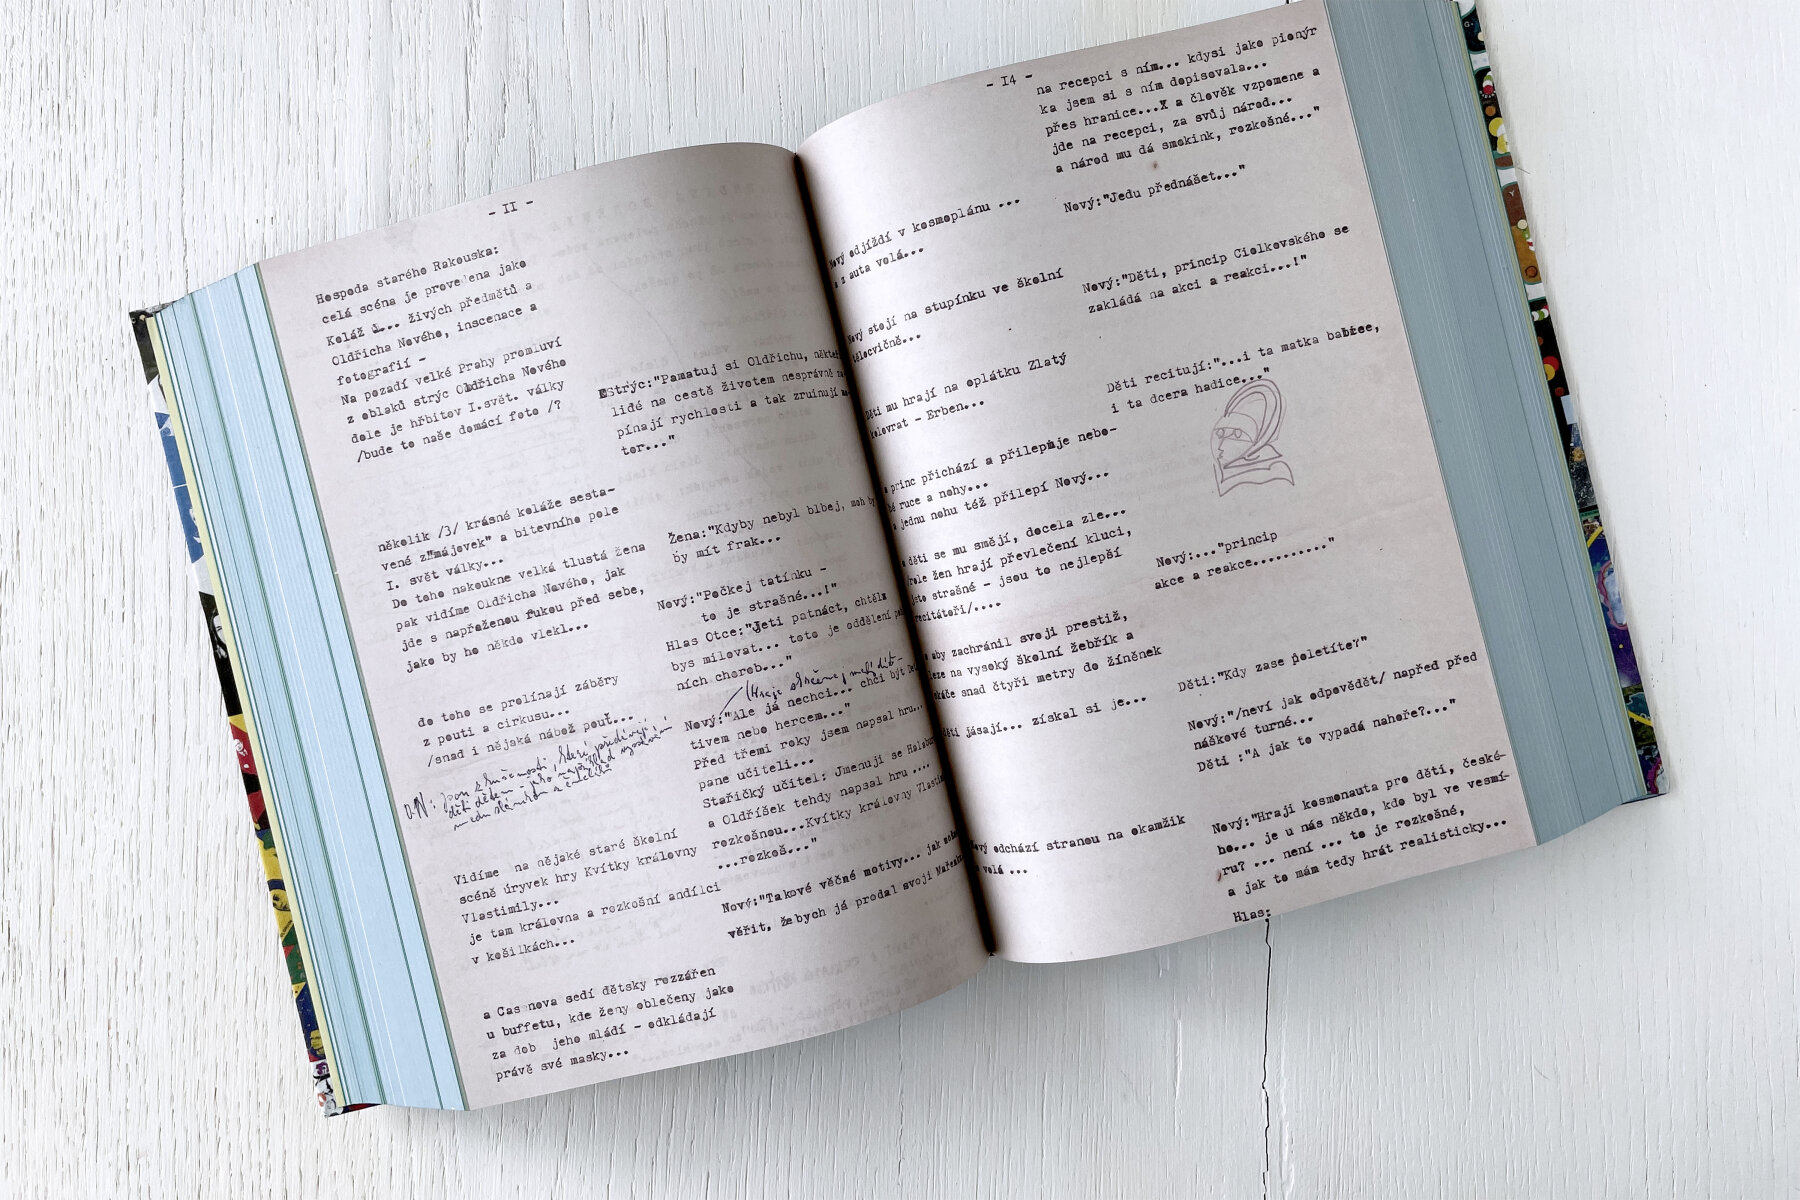 - II -
Hospoda starého Rakouska:
celá scéna je provedena jako
Koláž z... živých předmětů a
Oldřicha Nového, inscenace a
fotografií -
Na pozadí velké Prahy promluví
z oblaků strýc Oldřicha Nového
dole je hřbitov I.svět. války
/bude to naše domácí foto /?
Strýc:"Pamatuj si Oldřichu,
lidé na cestě životem nesprávně
pínají rychlosti a tak zruinují
tor..."
několik /3/ krásné koláže sesta-
vené z"májovek" a bitevního pole
I. svět války...
Do toho nakoukne velká tlustá žena
pak vidíme Oldřicha Nového, jak
jde s napřaženou rukou před sebe,
jako by ho někdo vlekl...
Žena:"Kdyby nebyl blbej, moh by
by mít frak...
Nový:"Počkej tatínku -
to je strašné...!"
Hlas Otce:"Jeti patnáct, chtěls
bys milovat... toto je oddělení
ních chorob..."
do toho se prolínají záběry
z pouti a cirkusu...
/snad i nějaká nábož pouť...
Nový:"Ale já nechci... chci být
tivem nebo hercem..."
Před třemi roky jsem napsal hru...
pane učiteli...
Stařičký učitel: Jmenuji se
a Oldříšek tehdy napsal hru ....
rozkošnou...Kvítky královny
...rozkoš..."
Vidíme na nějaké staré školní
scéně úryvek hry Kvítky královny
Vlastimily...
je tam královna a rozkošní andílci
v košilkách...
Nový:"Takové věčné motivy... jak
věřit, žebych já prodal svoji
a Cas nova sedí dětsky rozzářen
u buffetu, kde ženy oblečeny jako
za dob jeho mládí - odkládají
právě své masky...
- I4 -
na recepci s ním... kdysi jako pionýr
ka jsem si s ním dopisovala...
přes hranice...X a člověk vzpomene a
jde na recepci, za svůj národ...
a národ mu dá smokink, rozkošné..."
Nový odjíždí v kosmoplánu ...
a z auta volá...
Nový:"Jedu přednášet..."
Nový stojí na stupínku ve školní
tělocvičně...
Nový:"Děti, princip Ciolkovského se
zakládá na akci a reakci...!"
Děti mu hrají na oplátku Zlatý
kolovrat - Erben...
Děti recitují:"...i ta matka babice,
i ta dcera hadice..."
princ přichází a přilepuje nebo-
hé ruce a nohy...
a jednu nohu též přilepí Nový...
děti se mu smějí, docela zle...
role žen hrají převlečení kluci,
jsto strašné - jsou to nejlepší
recitátoři/....
Nový:..."princip
akce a reakce.........."
aby zachránil svoji prestiž,
leze na vysoký školní žebřík a
skáče snad čtyři metry do žíněnek
Děti:"Kdy zase poletíte?"
děti jásají... získal si je...
Nový:"/neví jak odpovědět/ napřed před
náškové turné...
Děti :"A jak to vypadá nahoře?..."
Nový odchází stranou na okamžik
volá ...
Nový:"Hraji kosmonauta pro děti, české-
ho... je u nás někdo, kdo byl ve vesmí-
ru? ... není ... to je rozkošné,
a jak to mám tedy hrát realisticky...
Hlas: